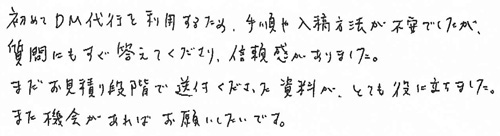 初めてDM代行を利用するため、手順や入稿方法が不安でしたが、
質問にもすぐ答えてくださり、信頼感がありました。
まだお見積り段階で送付くださった資料が、とても役に立ちました。
また機会があればお願いしたいです。